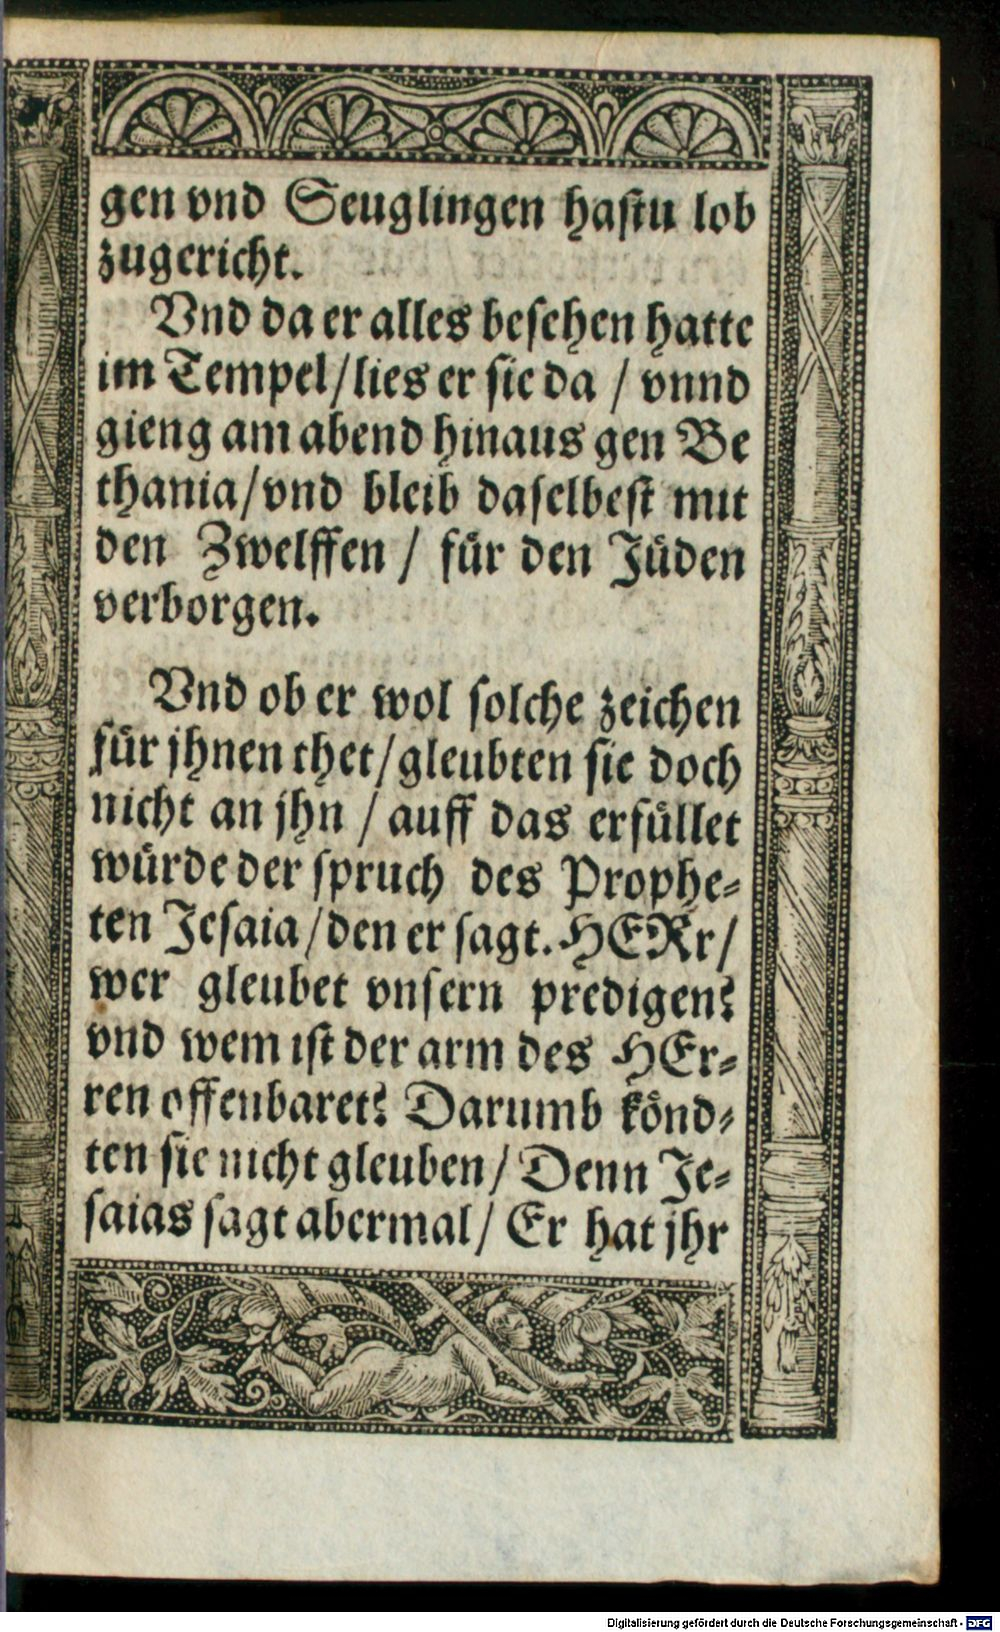 gen vnd Seuglingen hastu lob
zugericht.
Vnd da er alles besehen hatte
im Tempel/lies er sie da / vnnd
gieng am abend hinaus gen Be
thania/vnd bleib daselbest mit
den Zwelffen / für den Jüden
verborgen.
Vnd ob er wol solche zeichen
für jhnen thet/gleubten sie doch
nicht an jhn / auff das erfüllet
würde der spruch des Prophe-
ten Jesaia/den er sagt. HERr/
wer gleubet vnsern predigen?
vnd wem ist der arm des HEr-
ren offenbaret? Darumb könd-
ten sie nicht gleuben/ Denn Je-
saias sagt abermal/ Er hat jhr
Digitalisierung gefördert durch die Deutsche Forschungsgemeinschaft - DFG